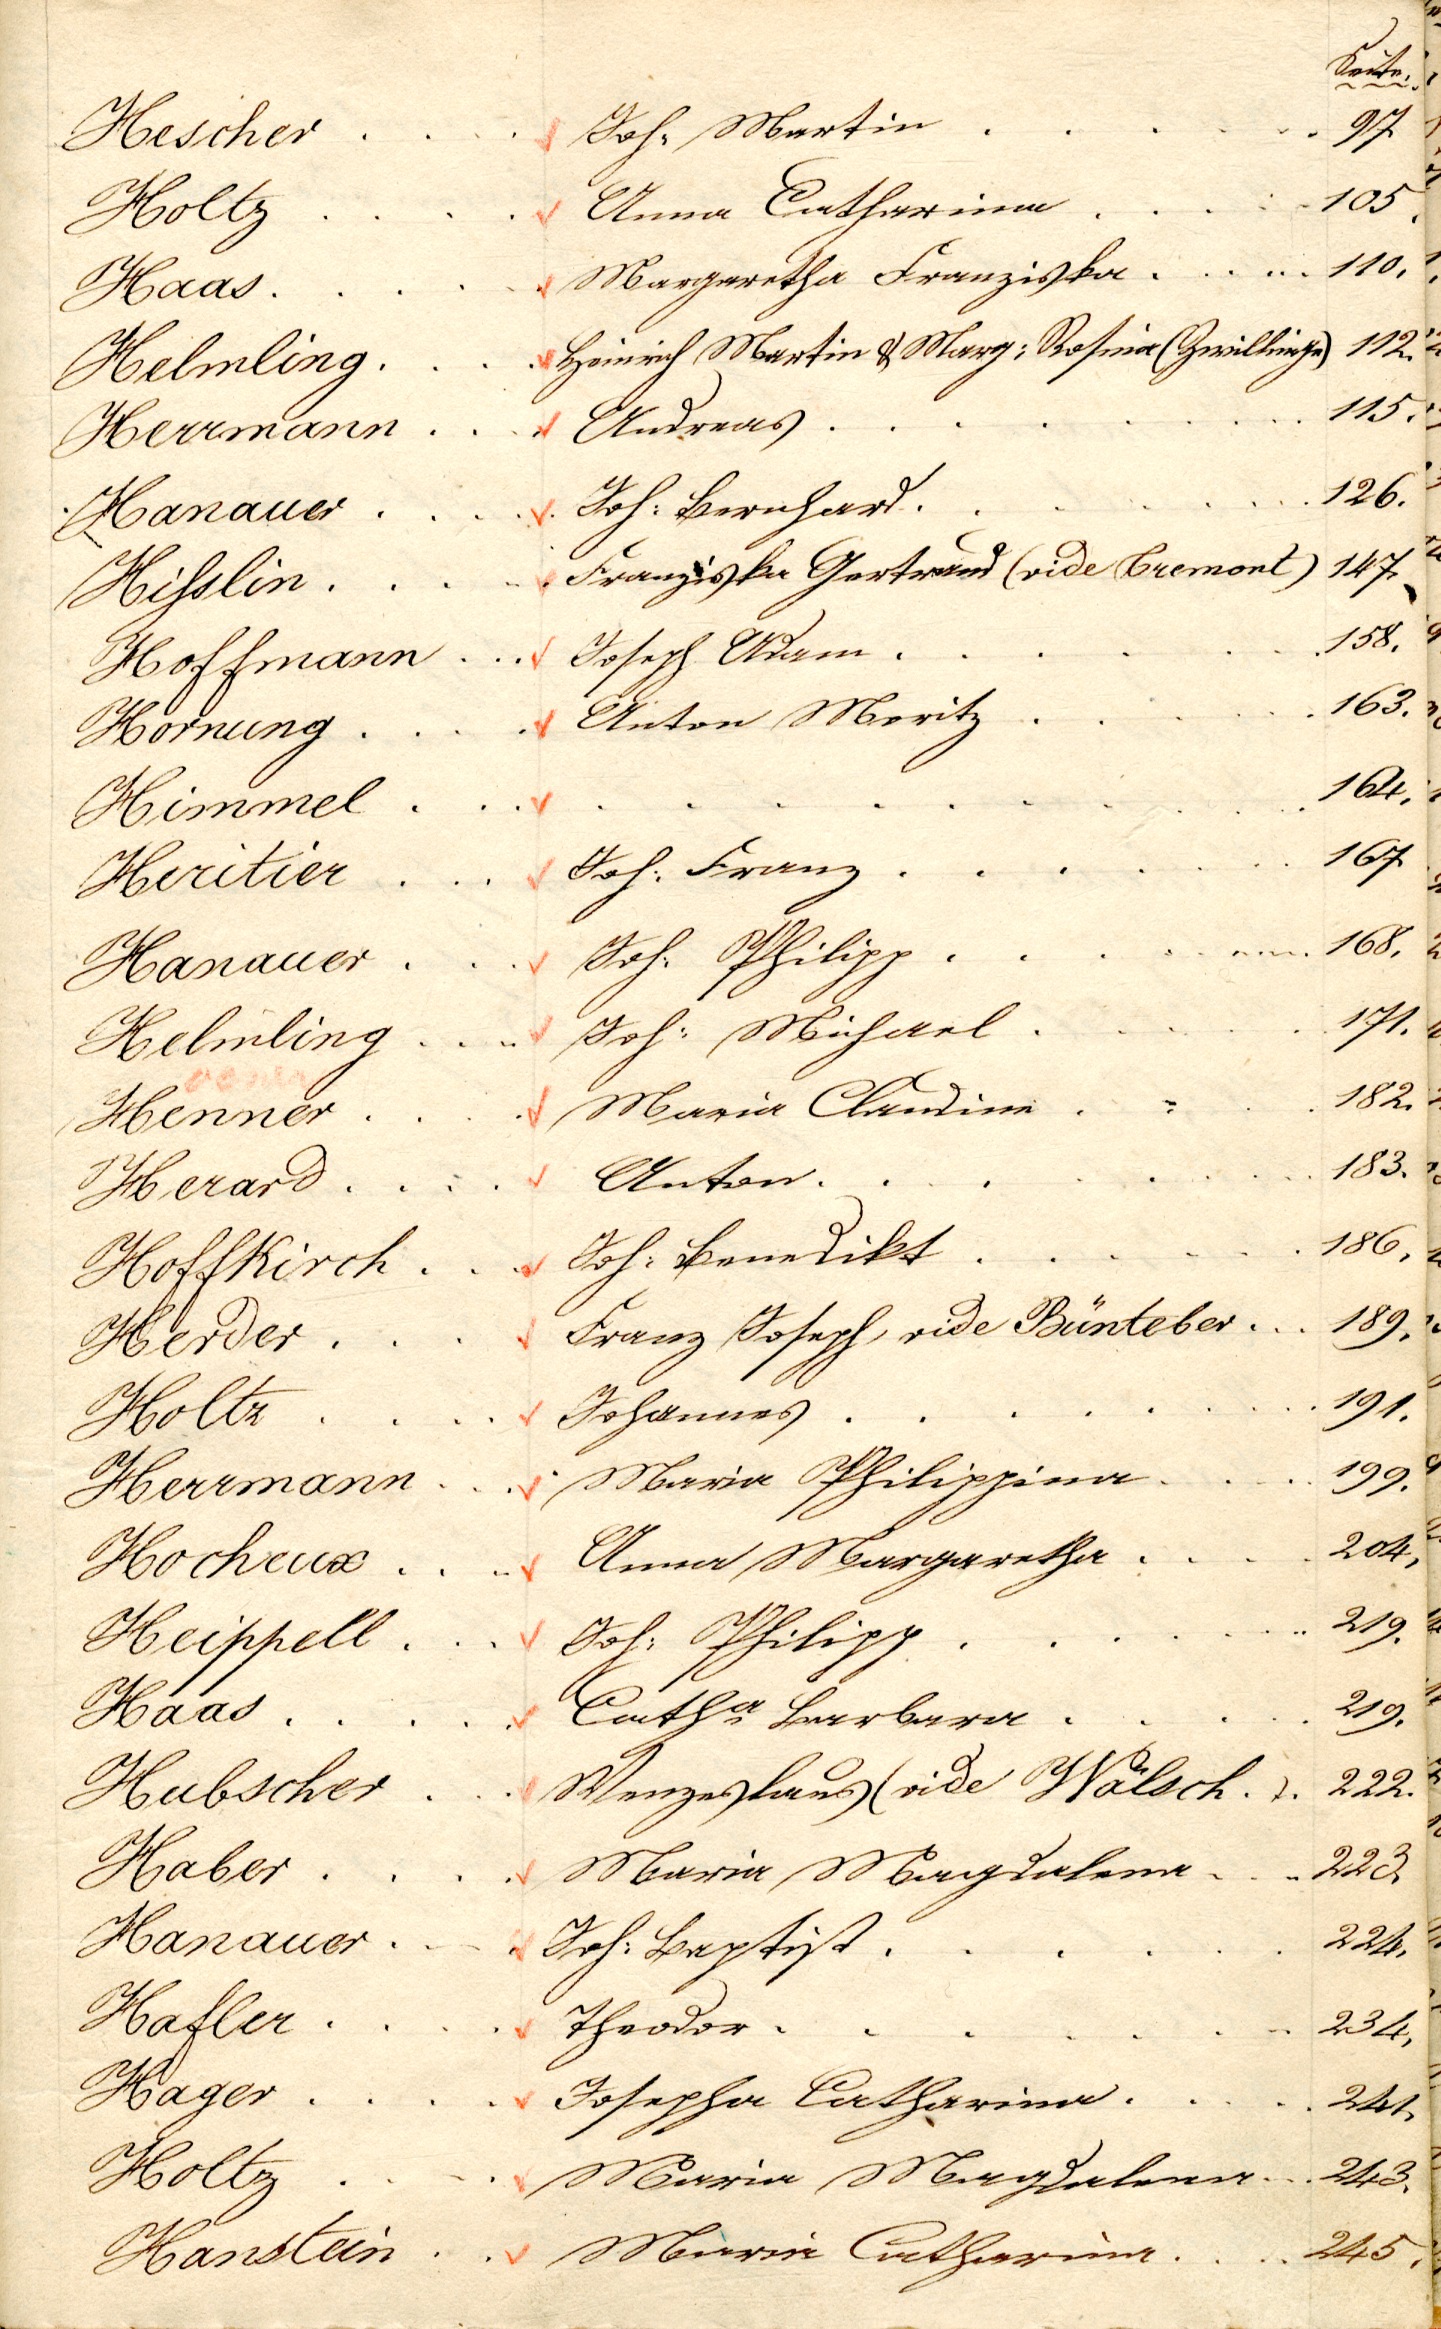 Seite.
Hescher . . . . Joh. Martin . . . . . . 97
Holtz . . . . Anna Catharina . . . . 105.
Haas. . . . . Margaretha Franziska . . . . . 110.
Helmling. . . . Heinrich Martin & Marg: Rosina (Zwillinge) 112.
Herrmann . . . Andreas . . . . . . . 115.
Hanauer . . . . Joh: Bernhard. . . . . . . 126.
Hisslin . . . . Franziska Gertraud (vide Cremont) 147.
Hoffmann . . . Joseph Adam . . . . . . 158.
Hornung . . . . Anton Moritz . . . . . 163.
Himmel . . . . . . . . . . . . 164.
Heritier . . . Joh: Franz . . . . . . 167
Hanauer . . . Joh: Philipp . . . . . . 168.
Helmling . . . Joh: Michael . . . . . 171.
Henner . . . . Maria Claudine . . . . 182.
Herard . . . . Anton. . . . . . . 183.
Hoffkirch . . . Joh: Benedikt . . . . . . 186.
Herder . . . Franz Joseph, vide Bünteber . . . 189.
Holtz . . . . Johannes . . . . . . . 191.
Herrmann . . . Maria Philippina . . . . 199.
Hocheux . . . . Anna Margaretha . . . . 204.
Heippell . . . Joh: Philipp . . . . . . 219.
Haas . . . . . Catha Barbara . . . . . 219.
Hubscher . . . Wenzeslaus (vide Wälsch . ). 222.
Haber . . . . Maria Magdalena . . . 223.
Hanauer . . . Joh: Baptist . . . . . . 224.
Hafler . . . . Theodor . . . . . . . 234.
Hager . . . . Josepha Catharina . . . . 241.
Holtz . . . Maria Magdalena . . . 243.
Hanstein . . Maria Catharina . . . . 245.